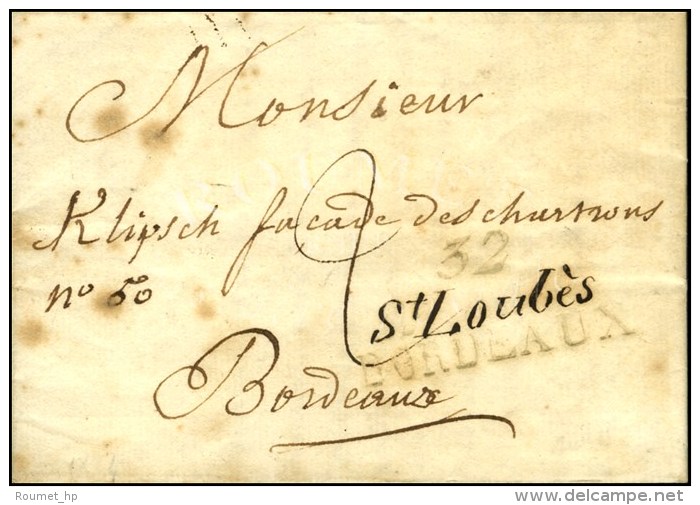 Monsieur
Klipsch facade des chartrons
no 50
2
32
St Loubès
BORDEAUX
Bordeaux
Roumet_hp
www.delcampe.net